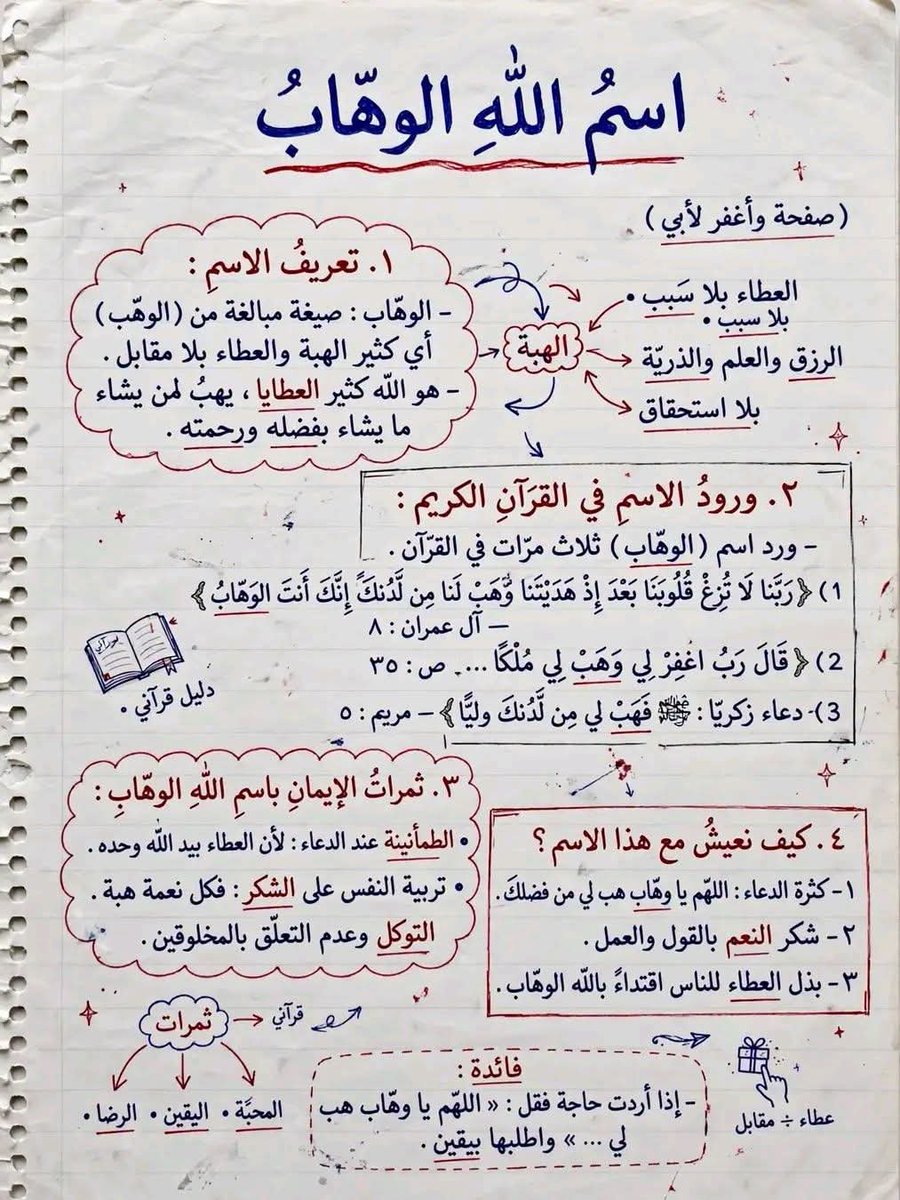 اسمُ اللهِ الوهّابُ
( صفحة وأغفر لأبي )
١. تعريفُ الاسمِ :
- الوهّاب : صيغة مبالغة من (الوهّب)
أي كثير الهبة والعطاء بلا مقابل .
- هو الله كثير العطايا ، يهبُ لمن يشاء
ما يشاء بفضله ورحمته .
الهبة
العطاء بلا سَبب •
بلا سبب •
الرزق والعلم والذريّة
بلا استحقاق
٢. ورودُ الاسمِ في القرَآنِ الكريم :
- ورد اسم (الوهّاب) ثلاث مرّات في القرّآن .
1) ﴿رَبَّنا لَا تُزِغْ قُلُوبَنَا بَعْدَ إِذْ هَدَيْتَنا وَّهَبْ لَنا مِن لَّدُنكَ إِنَّكَ أَنتَ الوَهّابُ﴾
— آل عمران : ٨
2) ﴿ قَالَ رَبُ اغفِرْ لِي وَهَبْ لِي مُلْكًا ... ص : ٣٥
3)- دعاء زكريّا : ﷺ فَهَبْ لي مِن لَّدُنكَ وليًّا﴾ – مريم : ٥
دليل قرآني •
٣. ثمراتُ الإيمانِ باسمِ اللهِ الوهّابِ :
• الطمأنينة عند الدعاء : لأن العطاء بيد الله وحده .
• تربية النفس على الشكر : فكل نعمة هبة .
التوكل وعدم التعلّق بالمخلوقين .
٤. كيف نعيشُ مع هذا الاسم ؟
١- كثرة الدعاء : اللهّم يا وهّاب هب لي من فضلكَ .
٢- شكر النعم بالقول والعمل .
٣- بذل العطاء للناس اقتداءً بالله الوهّاب .
ثمرات
قرآني
المحبّة •
اليقين •
الرضا •
فائدة :
- إذا أردت حاجة فقل : « اللهّم يا وهّاب هب
لي ... » واطلبها بيقين .
عطاء ÷ مقابل